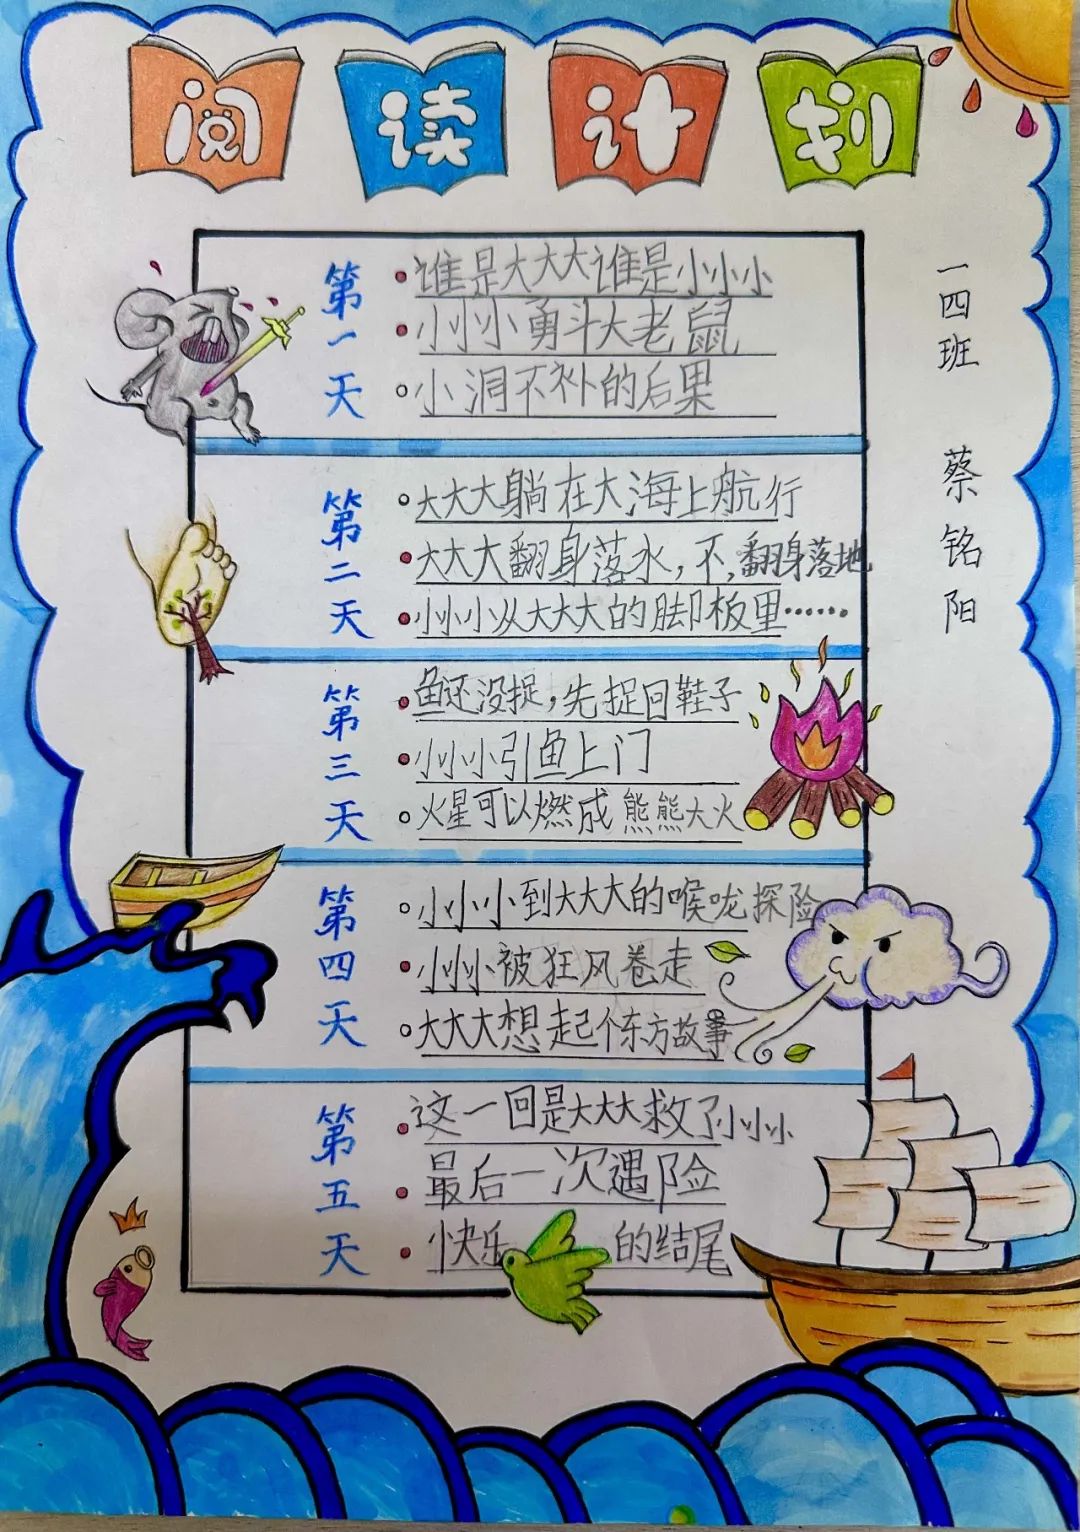 阅读计划
一四班 蔡铭阳
第一天
谁是大大大谁是小小小
小小小勇斗大老鼠
小洞不补的后果
第二天
大大大躺在大海上航行
大大大翻身落水，不，翻身落地
小小小从大大大的脚板里……
第三天
鱼还没捉，先捉回鞋子
小小小引鱼上门
火星可以燃成熊熊大火
第四天
小小小到大大大的喉咙探险
小小小被狂风卷走
大大大想起个东方故事
第五天
这一回是大大大救了小小小
最后一次遇险
快乐的结尾